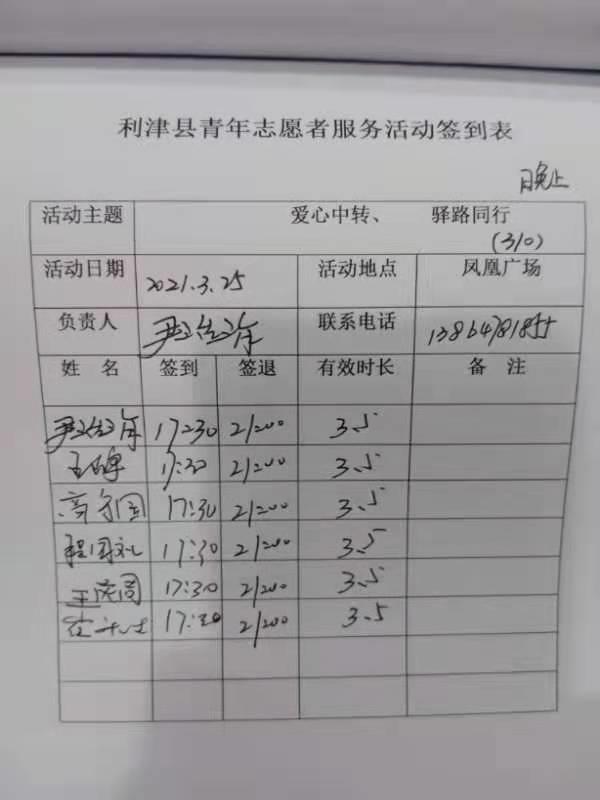 利津县青年志愿者服务活动签到表
晚上
活动主题 爱心中转、 驿路同行
(310)
活动日期 2021.3.25 活动地点 凤凰广场
负责人 联系电话
姓名 签到 签退 有效时长 备注
17:30 21:00 3.5
17:30 21:00 3.5
高守国 17:30 21:00 3.5
程国礼 17:30 21:00 3.5
17:30 21:00 3.5
17:30 21:00 3.5